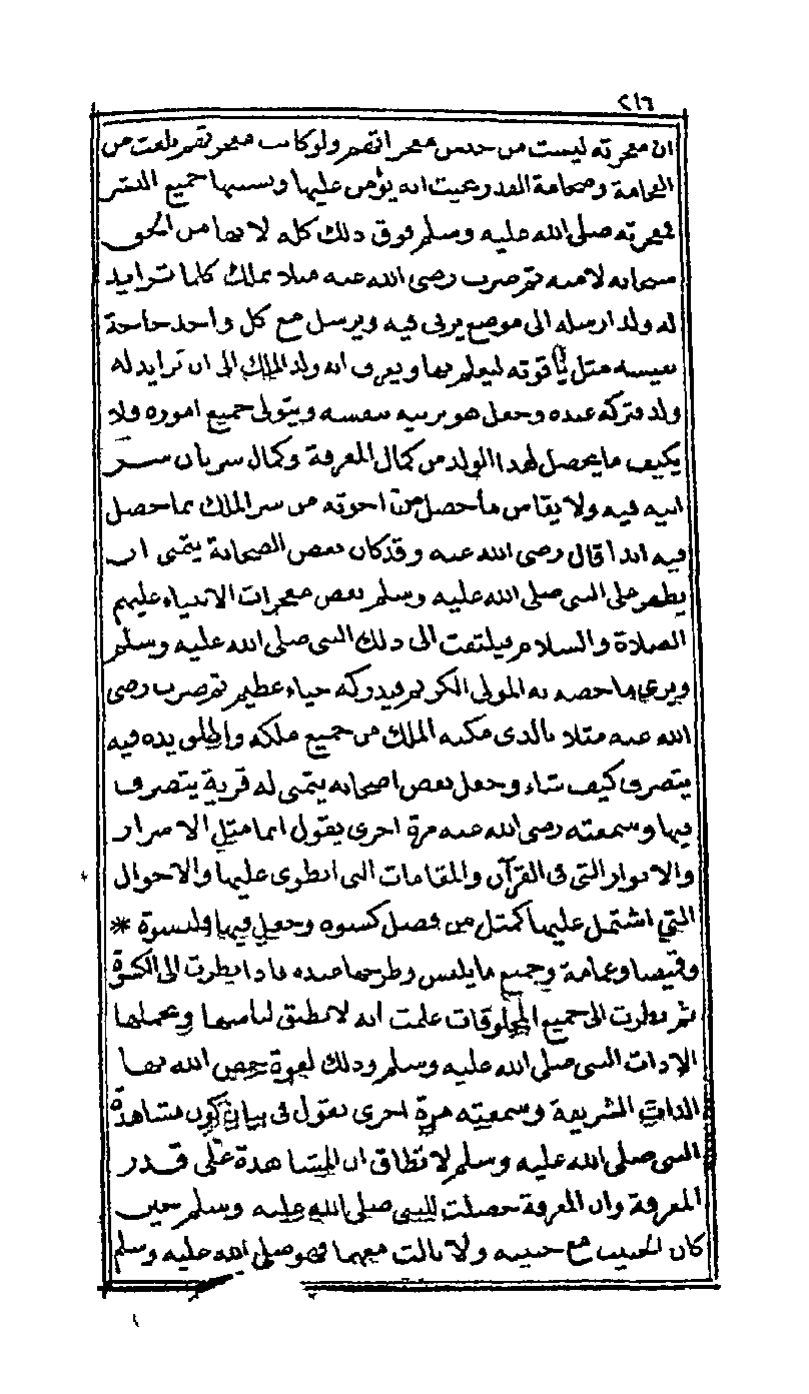 ٢١٦
ان معجزته ليست من جنس معجزاتهم ولو كانت معجزتهم بلغت من
الفخامة وضخامة القدر بحيث انه يؤمن عليها وبسببها جميع البشر
فمعجزته صلى الله عليه وسلم فوق ذلك كله لانها من الحق
سبحانه لامنه ثم ضرب رضى الله عنه مثلا بملك كلما تزايد
له ولد ارسله الى موضع يربى فيه ويرسل مع كل واحد حاجة
نفيسة مثل ياقوتة ليعلم بها ويعرف انه ولد الملك الى ان تزايد له
ولد فتركه عنده وجعل هو يربيه بنفسه ويتولى جميع اموره ولا
يكيف ما يحصل لهذا الولد من كمال المعرفة وكمال سريان سر
ابيه فيه ولا يقاس ما حصل من اخوته من سر الملك بما حصل
فيه ابدا قال رضى الله عنه وقد كان بعض الصحابة يتمنى ان
يظهر على النبى صلى الله عليه وسلم بعض معجزات الانبياء عليهم
الصلاة والسلام فيلتفت الى ذلك النبى صلى الله عليه وسلم
ويرى ما خصه به المولى الكريم فيدركه حياء عظيم ثم ضرب رضى
الله عنه مثلا بالذى مكنه الملك من جميع ملكه واطلق يده فيه
يتصرف كيف شاء وجعل بعض اصحابه يتمنى له قرية يتصرف
فيها وسمعته رضى الله عنه مرة اخرى يقول انما مثل الاسرار
والانوار التى فى القرآن والمقامات التى انطوى عليها والاحوال
التى اشتمل عليها كمثل من فصل كسوه وجعل فيها قلنسوة *
وقميصا وعمامة وجميع ما يلبس وطرحها عنده فاذا نظرت الى الكسوة
ثم نظرت الى جميع المخلوقات علمت انه لا تطيق لباسها ويحملها
الا ذات النبى صلى الله عليه وسلم وذلك لقوة خص الله بها
الذات الشريفة وسمعته مرة اخرى يقول فى بيان كون مشاهدة
النبى صلى الله عليه وسلم لا تطاق ان المشاهدة على قدر
المعرفة وان المعرفة حصلت للنبى صلى الله عليه وسلم حين
كان الحبيب مع حبيبه ولا ثالث معهما فهو صلى الله عليه وسلم